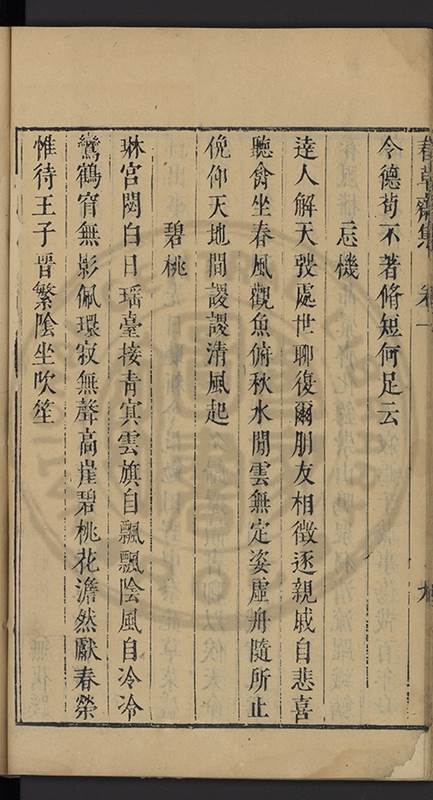 春草齋集 卷一 九
令德苟不著脩短何足云
忘機
達人解天弢處世聊復爾朋友相徵逐親戚自悲喜
聽禽坐春風觀魚俯秋水閒雲無定姿虛舟隨所止
俛仰天地間謖謖清風起
碧桃
琳宮閟白日瑶臺接青冥雲旗自飄飄陰風自冷冷
鸞鶴窅無影佩環寂無聲高崖碧桃花澹然獻春榮
惟待王子晋繁陰坐吹笙